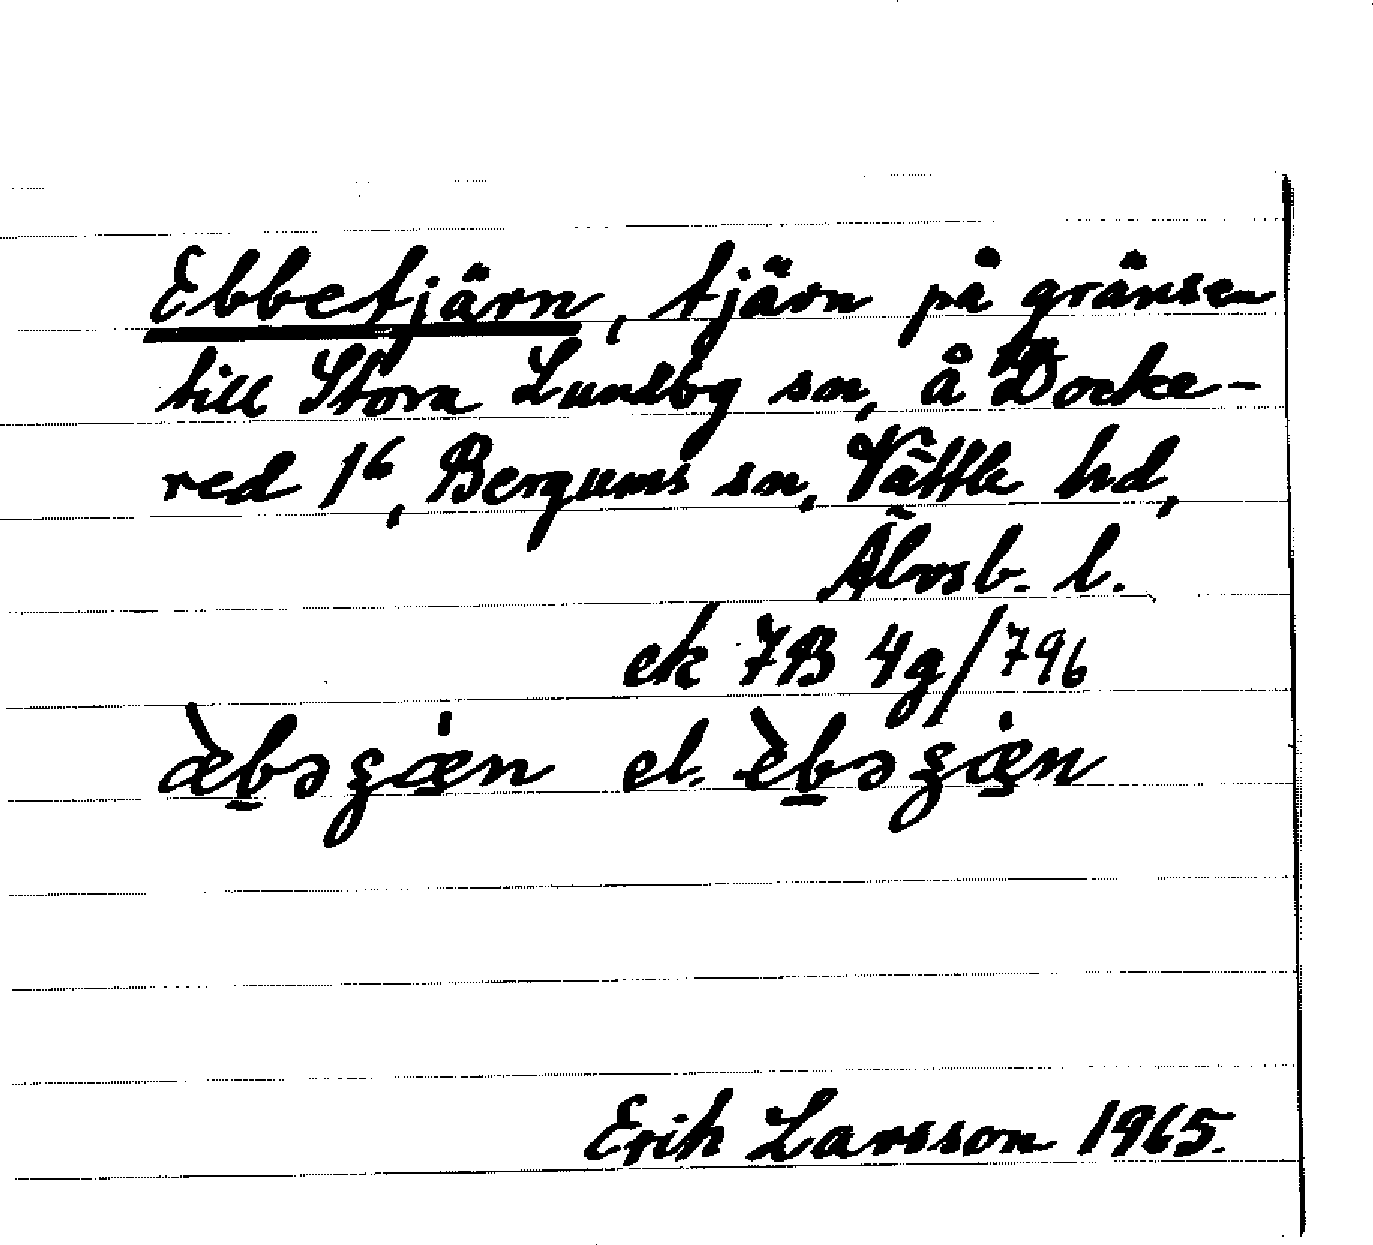 Ebbetjärn, tjärn på gränsen
till Stora Lundby sn, å Docke-
red 1⁶, Bergums sn, Vättle hd,
Älvsb. l.
ek 7B 4g/796
el.
Erik Larsson 1965.